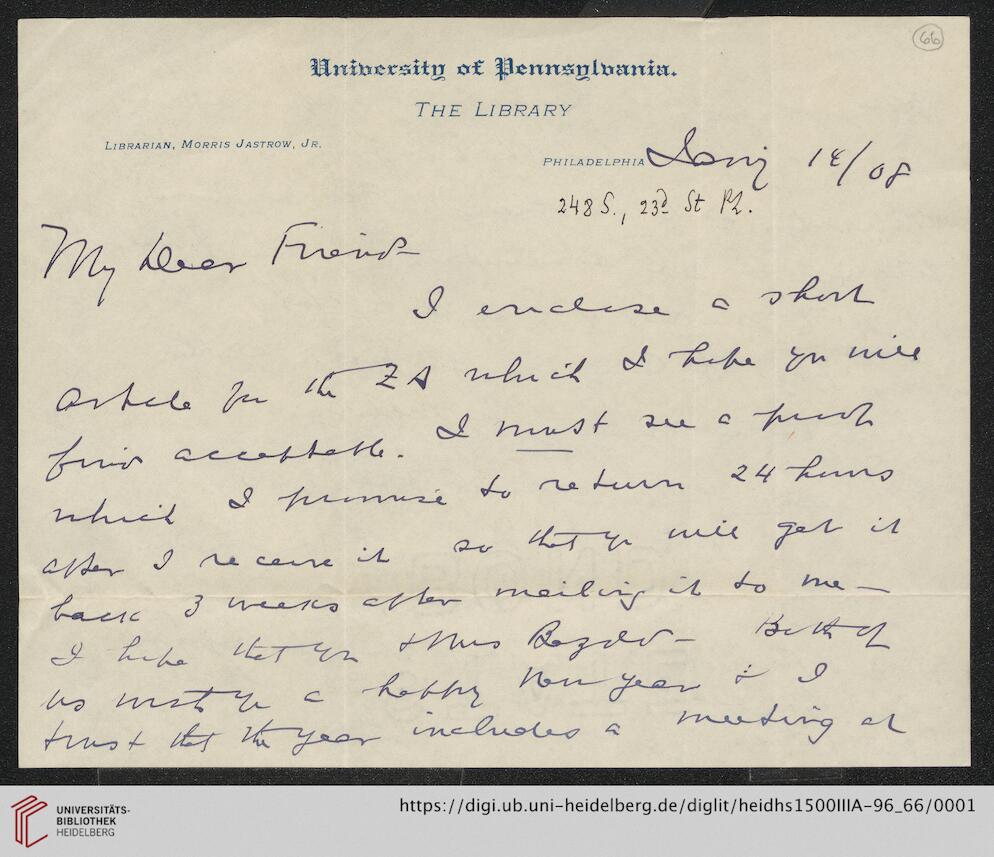 66
University of Pennsylvania.
THE LIBRARY
LIBRARIAN, MORRIS JASTROW, JR.
PHILADELPHIA 14/08
248 S., 23d St Ph.
My Dear Friend
I enclose a short
article for the ZA which I hope you will
find acceptable. I must see a proof
which I promise to return 24 hours
after I receive it so that you will get it
back 3 weeks after mailing it to me —
I hope that you & Mrs Bezold — Both of
us wish you a happy New Year & I
trust that the year includes a meeting at
UNIVERSITÄTS-
BIBLIOTHEK
HEIDELBERG
https://digi.ub.uni-heidelberg.de/diglit/heidhs1500IIIA-96_66/0001